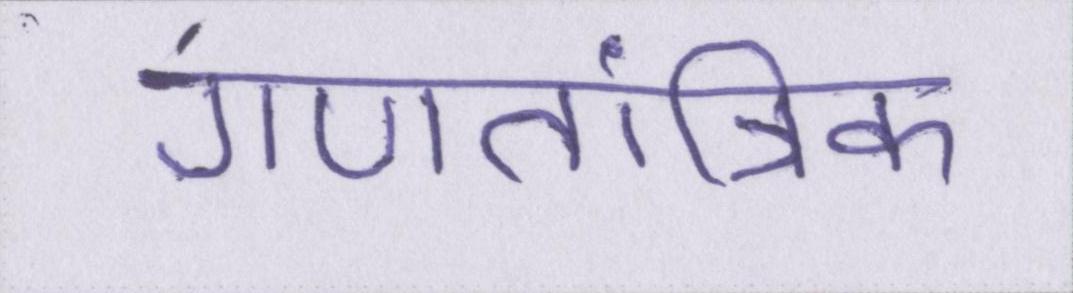 गंणतांत्रिक